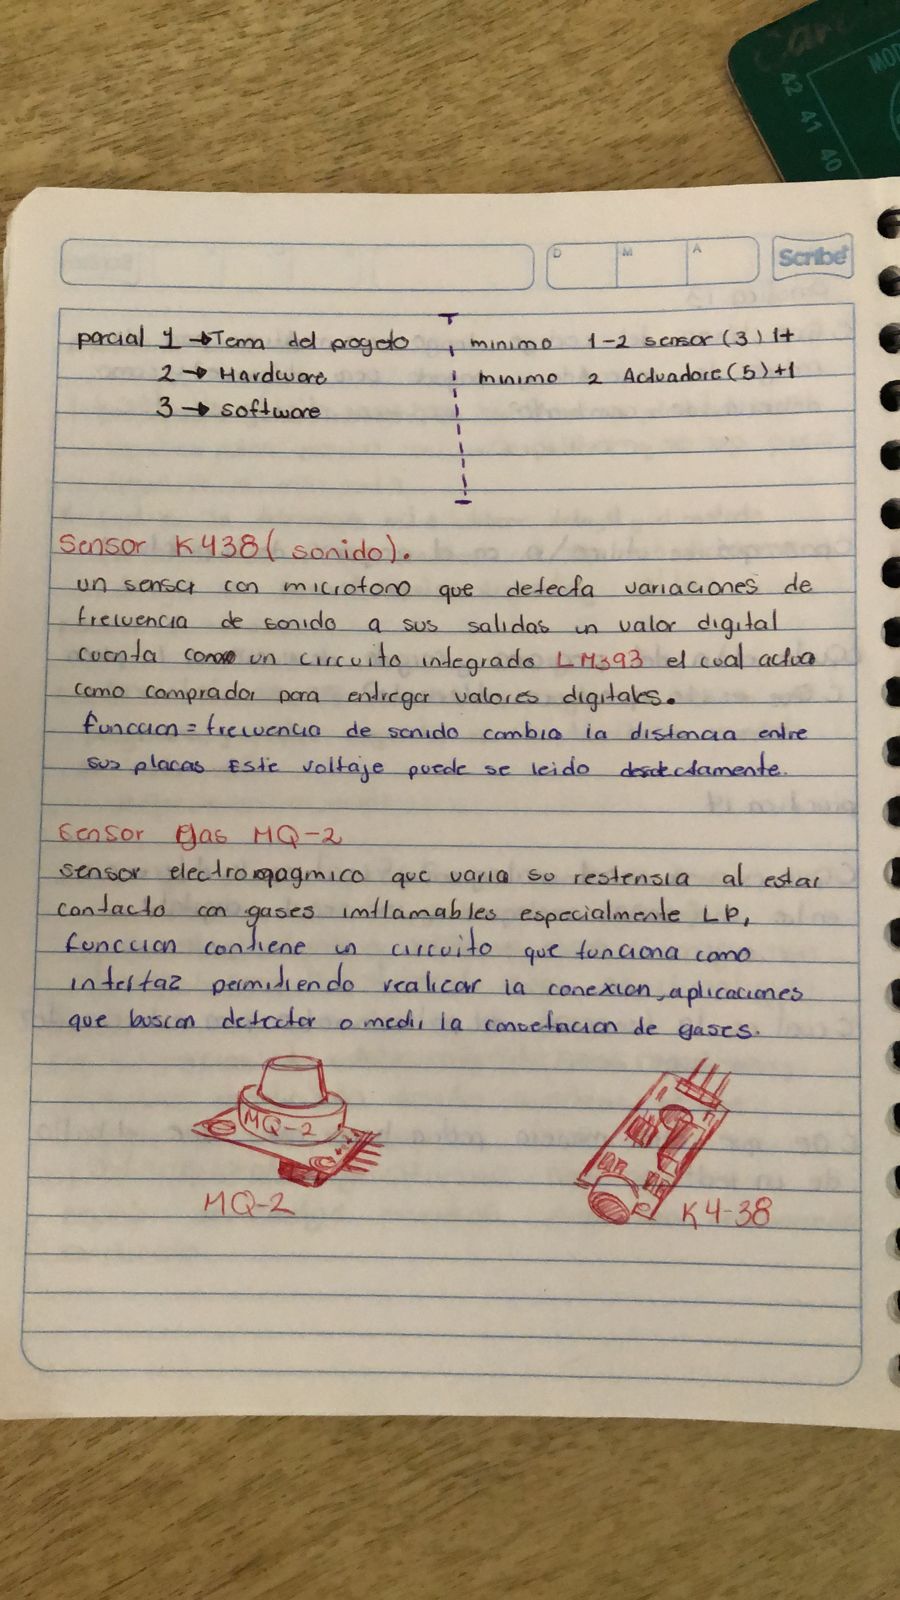 Car
MOD
42
41
40
D
M
A
Scribe
parcial 1 → Tema del progeto
minimo 1-2 sensor (3) 1+
2 → Hardware
minimo 2 Actuadore (5) +1
3 → software
Sensor K438 ( sonido ).
un sensor con microfono que detecta variaciones de
frecuencia de sonido a sus salidas un valor digital
cuenta como un circuito integrado LM393 el cual actua
como comprador para entregar valores digitales.
funccion = frecuencia de sonido cambia la distancia entre
sus placas Este voltaje puede se leido desdectamente.
Sensor gas MQ-2
sensor electromagmico que varia su restensia al estar
contacto con gases imflamables especialmente LP,
funccion contiene un circuito que funciona como
interfaz permitiendo realicar la conexion, aplicaciones
que buscan detectar o medir la concetracion de gases.
MQ-2
MQ-2
K4-38